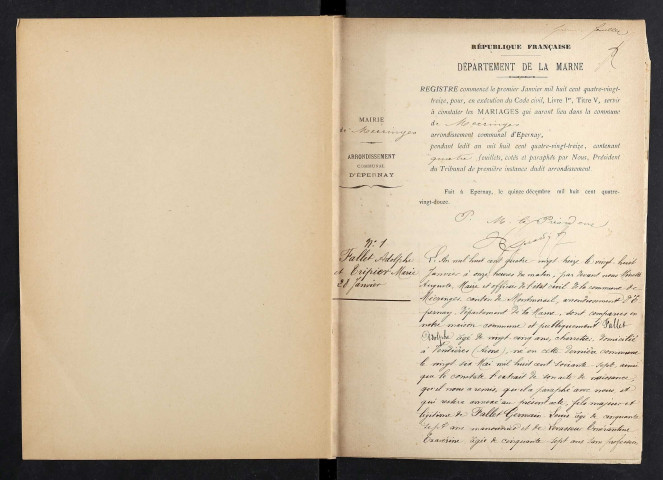 RÉPUBLIQUE FRANÇAISE
DÉPARTEMENT DE LA MARNE
REGISTRE commencé le premier Janvier mil huit cent quatre-vingt-
treize, pour, en exécution du Code civil, Livre Ier, Titre V, servir
à constater les MARIAGES qui auront lieu dans la commune
de Mécringes
arrondissement communal d'Epernay,
pendant ledit an mil huit cent quatre-vingt-treize, contenant
quatre feuillets, cotés et paraphés par Nous, Président
du Tribunal de première instance dudit arrondissement.
Fait à Epernay, le quinze décembre mil huit cent quatre-
vingt-douze.
P. M. le Président
MAIRIE
de Mécringes
ARRONDISSEMENT
COMMUNAL
D'EPERNAY
N° 1
Fallet Adolphe
et Tripier Marie
28 Janvier
L'An mil huit cent quatre vingt treize le vingt huit
Janvier à onze heures du matin, par devant nous
Auguste, Maire et officier de l'état civil de la commune de
Mécringes canton de Montmirail, arrondissement d'E
pernay, département de la Marne, sont comparus en
notre maison commune et publiquement Fallet
Adolphe âgé de vingt cinq ans, charretier, domicilié
à (Aisne), né en cette dernière commune
le vingt six Mai mil huit cent soixante sept, ainsi
que le constate l'extrait de son acte de naissance,
qu'il nous a remis, qu'il a paraphé avec nous et
qui restera annexé au présent acte, fils majeur et
légitime de Fallet Germain Louis âgé de cinquante
sept ans manouvrier et de Levasseur
âgée de cinquante sept ans sans profession